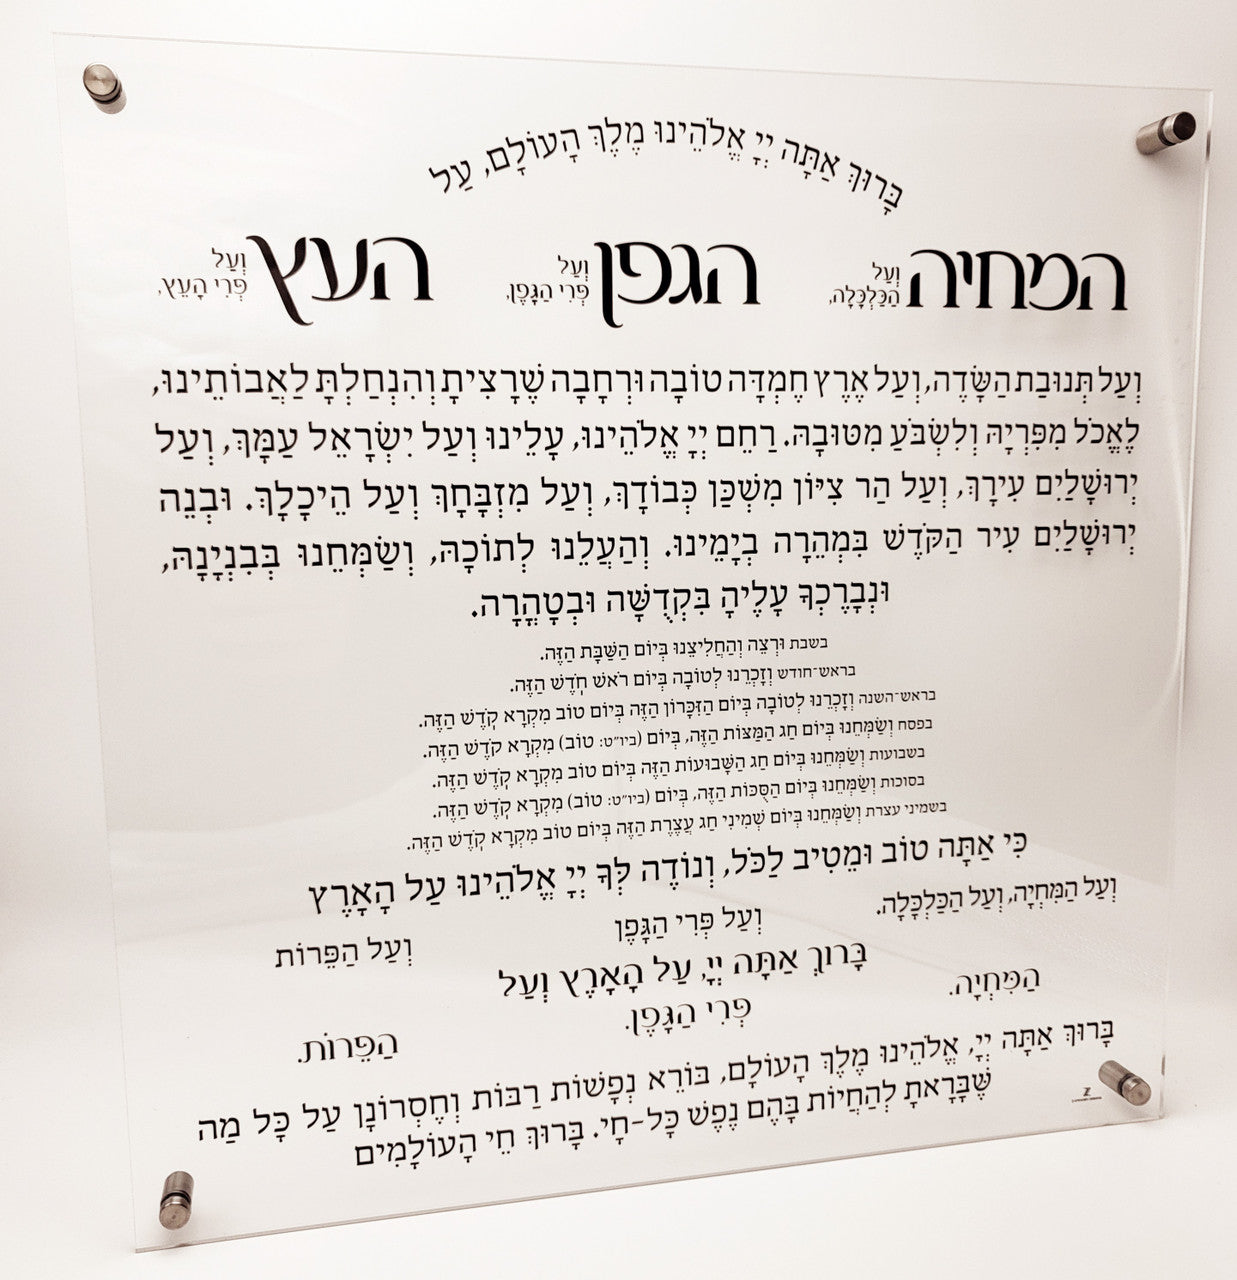 בָּרוּךְ אַתָּה יְיָ אֱלֹהֵינוּ מֶלֶךְ הָעוֹלָם, עַל
המחיה וְעַל הַכַּלְכָּלָה, הגפן וְעַל פְּרִי הַגָּפֶן, העץ וְעַל פְּרִי הָעֵץ,
וְעַל תְּנוּבַת הַשָּׂדֶה, וְעַל אֶרֶץ חֶמְדָּה טוֹבָה וּרְחָבָה שֶׁרָצִיתָ וְהִנְחַלְתָּ לַאֲבוֹתֵינוּ,
לֶאֱכֹל מִפִּרְיָהּ וְלִשְׂבֹּעַ מִטּוּבָהּ. רַחֵם יְיָ אֱלֹהֵינוּ, עָלֵינוּ וְעַל יִשְׂרָאֵל עַמָּךְ, וְעַל
יְרוּשָׁלַיִם עִירָךְ, וְעַל הַר צִיּוֹן מִשְׁכַּן כְּבוֹדָךְ, וְעַל מִזְבָּחָךְ וְעַל הֵיכָלָךְ. וּבְנֵה
יְרוּשָׁלַיִם עִיר הַקֹּדֶשׁ בִּמְהֵרָה בְיָמֵינוּ. וְהַעֲלֵנוּ לְתוֹכָהּ, וְשַׂמְּחֵנוּ בְּבִנְיָנָהּ,
וּנְבָרֶכְךָ עָלֶיהָ בִּקְדֻשָּׁה וּבְטָהֳרָה.
בשבת וּרְצֵה וְהַחֲלִיצֵנוּ בְּיוֹם הַשַּׁבָּת הַזֶּה.
בראש־חודש וְזָכְרֵנוּ לְטוֹבָה בְּיוֹם רֹאשׁ חֹדֶשׁ הַזֶּה.
בראש־השנה וְזָכְרֵנוּ לְטוֹבָה בְּיוֹם הַזִּכָּרוֹן הַזֶּה בְּיוֹם טוֹב מִקְרָא קֹדֶשׁ הַזֶּה.
בפסח וְשַׂמְּחֵנוּ בְּיוֹם חַג הַמַּצּוֹת הַזֶּה, בְּיוֹם (ביו״ט: טוֹב) מִקְרָא קֹדֶשׁ הַזֶּה.
בשבועות וְשַׂמְּחֵנוּ בְּיוֹם חַג הַשָּׁבוּעוֹת הַזֶּה בְּיוֹם טוֹב מִקְרָא קֹדֶשׁ הַזֶּה.
בסוכות וְשַׂמְּחֵנוּ בְּיוֹם הַסֻּכּוֹת הַזֶּה, בְּיוֹם (ביו״ט: טוֹב) מִקְרָא קֹדֶשׁ הַזֶּה.
בשמיני עצרת וְשַׂמְּחֵנוּ בְּיוֹם שְׁמִינִי חַג עֲצֶרֶת הַזֶּה בְּיוֹם טוֹב מִקְרָא קֹדֶשׁ הַזֶּה.
כִּי אַתָּה טוֹב וּמֵטִיב לַכֹּל, וְנוֹדֶה לְּךָ יְיָ אֱלֹהֵינוּ עַל הָאָרֶץ
וְעַל הַמִּחְיָה, וְעַל הַכַּלְכָּלָה. וְעַל פְּרִי הַגָּפֶן וְעַל הַפֵּרוֹת
בָּרוּךְ אַתָּה יְיָ, עַל הָאָרֶץ וְעַל
הַמִּחְיָה. פְּרִי הַגָּפֶן. הַפֵּרוֹת.
בָּרוּךְ אַתָּה יְיָ, אֱלֹהֵינוּ מֶלֶךְ הָעוֹלָם, בּוֹרֵא נְפָשׁוֹת רַבּוֹת וְחֶסְרוֹנָן עַל כָּל מַה
שֶּׁבָּרָאתָ לְהַחֲיוֹת בָּהֶם נֶפֶשׁ כָּל-חָי. בָּרוּךְ חֵי הָעוֹלָמִים